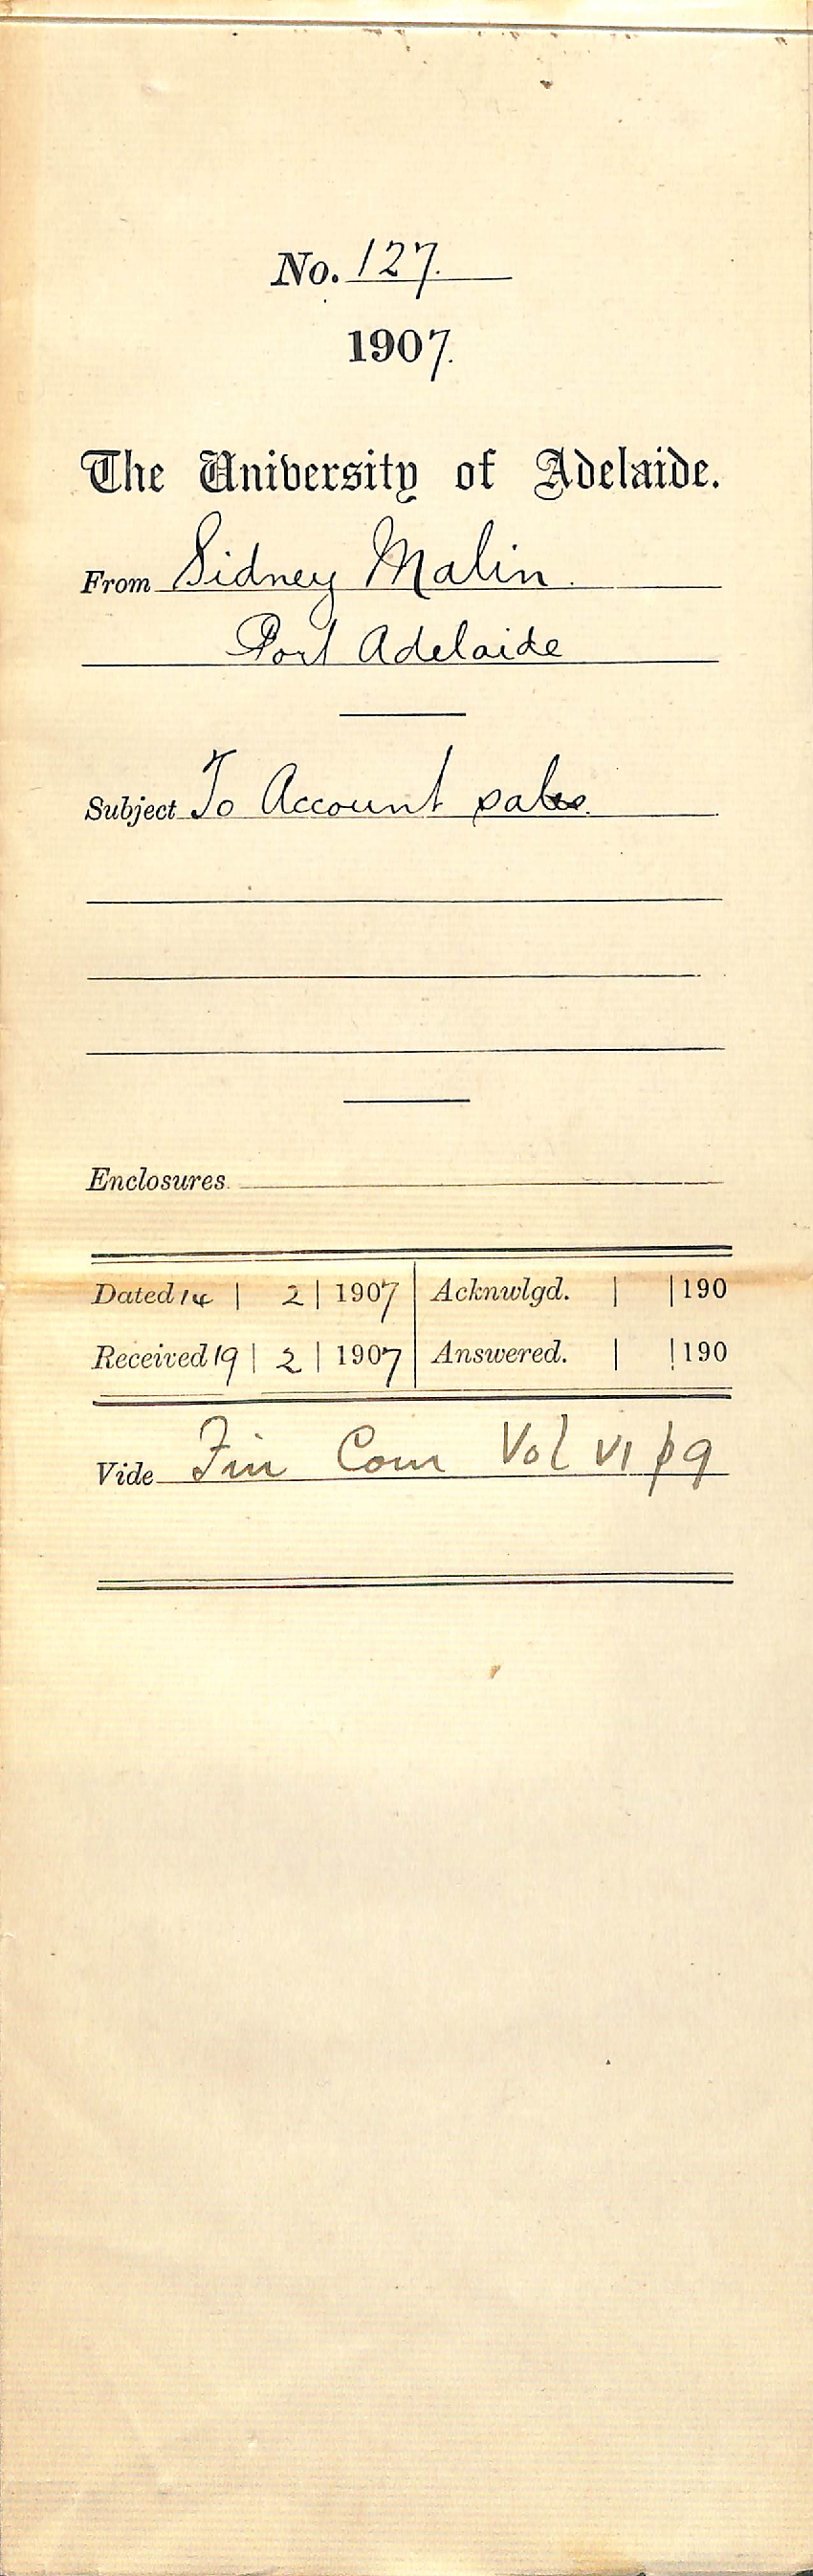 No. 127.
1907.
The University of Adelaide.
From Sidney Malin.
Port Adelaide
Subject To Account sales.
Enclosures
Dated 14 | 2 | 1907 | Acknwlgd. | | 190
Received 19 | 2 | 1907 | Answered. | | 190
Vide Fin Com Vol VI p 9